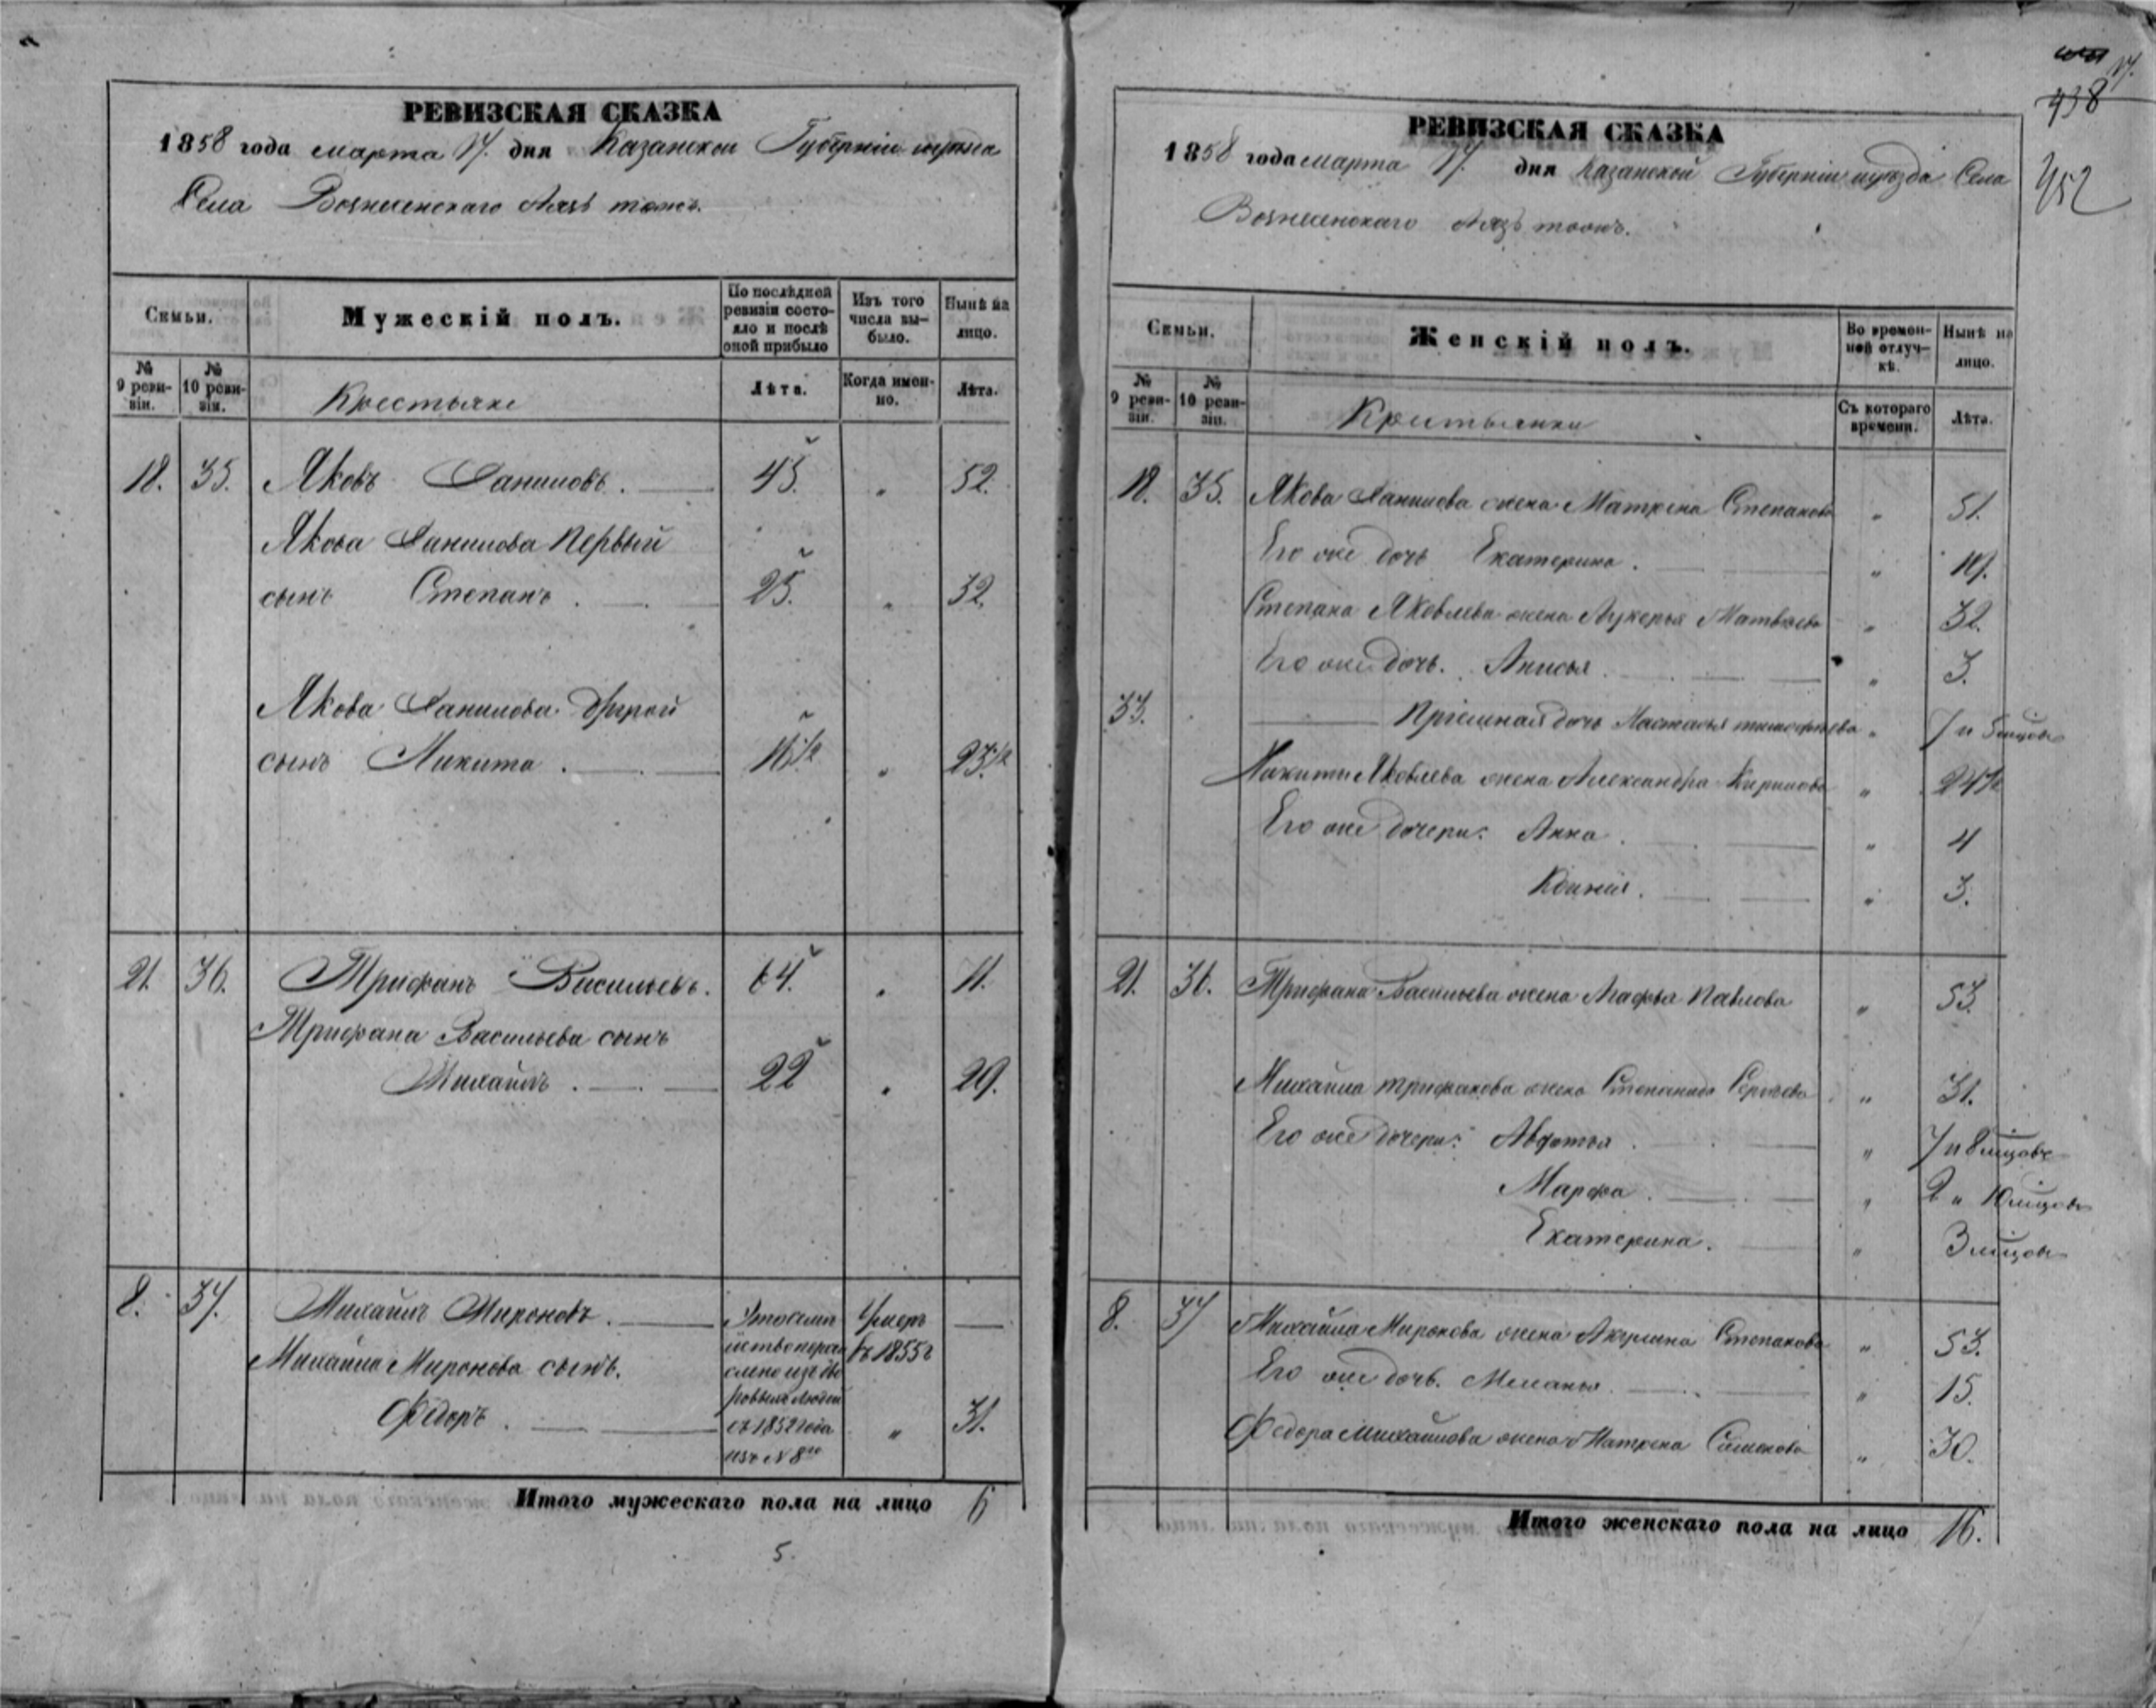 РЕВИЗСКАЯ СКАЗКА
1858 года марта 17. дня Казанской Губерніи
Села Вознесенскаго
Семьи.
Мужескій полъ.
По послѣдней ревизіи состояло и послѣ оной прибыло
Изъ того числа выбыло.
Нынѣ на лицо.
№ 9 ревизіи.
№ 10 ревизіи.
Крестьяне
Лѣта.
Когда именно.
Лѣта.
18. 35. Яковъ Даниловъ. 45. " 52.
Якова Данилова первый
сынъ Степанъ. 25. " 32.
Якова Данилова другой
сынъ Никита. 16½ " 23½
21. 36. Трифанъ Васильевъ. 64. " 71.
Трифана Васильева сынъ
Михайлъ. 22 " 29.
8. 37. Михайлъ Мироновъ. Это семейство перечислено изъ дворовыхъ людей съ 1852 года изъ № 8го Умеръ въ 1855г —
Михайла Миронова сынъ.
Федоръ. " 31.
Итого мужескаго пола на лицо 6
5.
438
452
РЕВИЗСКАЯ СКАЗКА
1858 года марта 17. дня Казанской Губерніи уѣзда Села
Вознесенскаго
Семьи.
Женскій полъ.
Во временной отлучкѣ.
Нынѣ на лицо.
№ 9 ревизіи.
№ 10 ревизіи.
Крестьянки
Съ котораго времени.
Лѣта.
18. 35. Якова Данилова жена Матрена Степанова " 51.
Его же дочь Екатерина. " 19.
Степана Яковлева жена Лукерья Матвѣева " 32.
Его же дочь. Анисья. " 3.
33. Пріемная дочь Настасья тимофѣева " 7 и 5 мѣцовъ
Никиты Яковлева жена Александра Кирилова " 24½
Его же дочери: Анна. " 4
Ксинія. " 3.
21. 36. Трифана Васильева жена Агафья Павлова " 53.
Михайла трифанова жена Степанида Сергѣева " 31.
Его же дочери: Авдотья. " 7 и 8 мѣцовъ
Марфа. " 2 и 10 мѣцовъ
Екатерина. " 3 мѣцовъ
8. 37 Михайла Миронова жена Акулина Степанова " 53.
Его же дочь. Меланья. " 15.
Федора Михайлова жена Матрена Семенова " 30.
Итого женскаго пола на лицо 16.